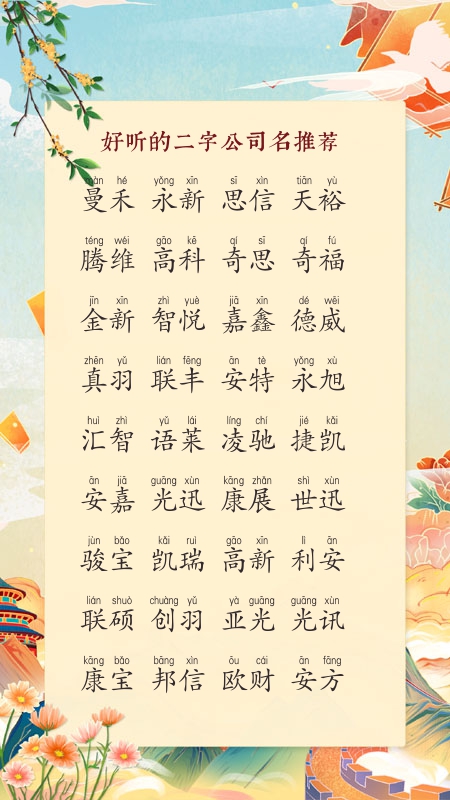 好听的二字公司名推荐
màn hé yǒng xīn sī xìn tiān yù
曼禾 永新 思信 天裕
téng wéi gāo kē qí sī qí fú
腾维 高科 奇思 奇福
jīn xīn zhì yuè jiā xīn dé wēi
金新 智悦 嘉鑫 德威
zhēn yǔ lián fēng ān tè yǒng xù
真羽 联丰 安特 永旭
huì zhì yǔ lái líng chí jié kǎi
汇智 语莱 凌驰 捷凯
ān jiā guāng xùn kāng zhǎn shì xùn
安嘉 光迅 康展 世迅
jùn bǎo kǎi ruì gāo xīn lì ān
骏宝 凯瑞 高新 利安
lián shuò chuàng yǔ yà guāng guāng xùn
联硕 创羽 亚光 光讯
kāng bǎo bāng xìn ōu cái ān fāng
康宝 邦信 欧财 安方